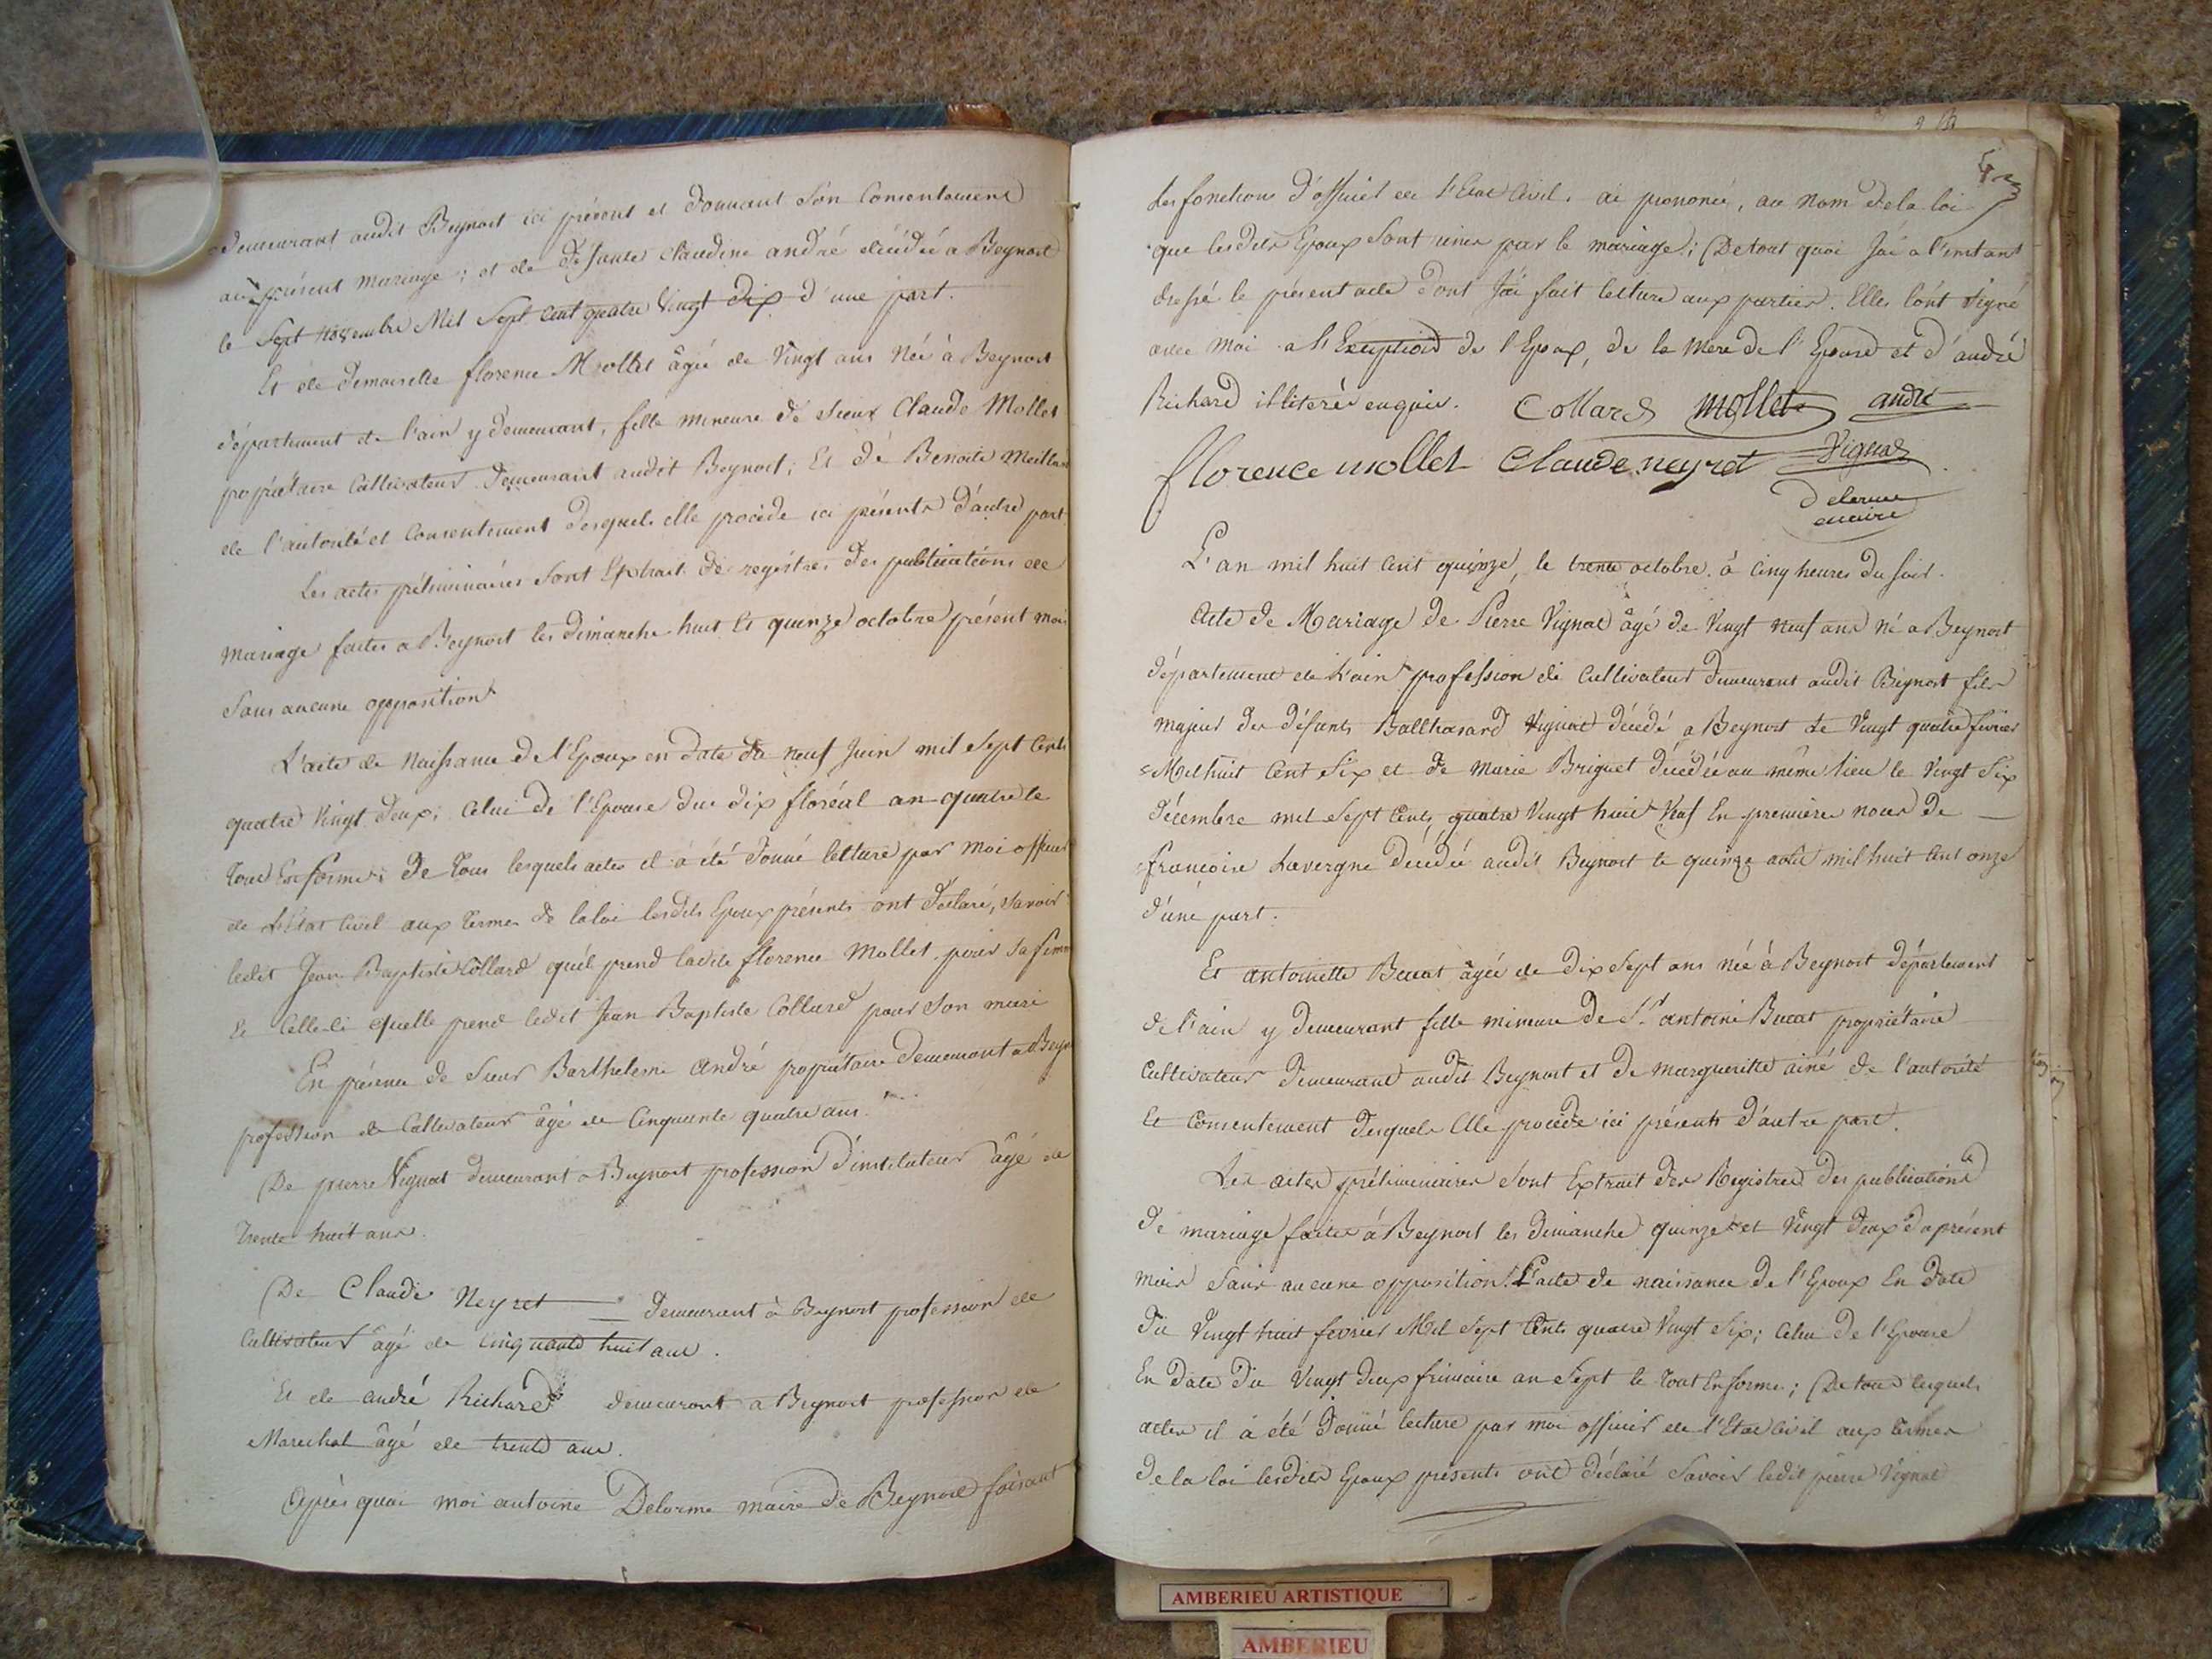 demeurant audit Beynost ici présent et donnant son Consentement
au présent mariage ; et de défunte Claudine andré décédée a Beynost
le Sept novembre Mil Sept Cent quatre Vingt dix d'une part.
Et de demoiselle florence Mollet âgée de Vingt ans Née à Beynost
département de l'ain y demeurant, fille mineure de sieur Claude Mollet
propriétaire Cultivateur demeurant audit Beynost ; Et de Benoite
de l'autorité et Consentement desquels elle procède ici présents d'autre part.
Les actes préliminaires Sont Extrait de registres des publications de
mariage faites a Beynost les dimanche huit Et quinze octobre présent mois
Sans aucune opposition
L'acte de Naissance de l'Epoux en date du neuf Juin mil Sept Cents
quatre Vingt deux ; Celui de l'Epouse du dix floréal an quatre le
tout En forme ; de tous lesquels actes il à été donné lecture par moi officier
de L'Etat Civil aux termes de la loi lesdits Epoux présents ont déclaré, Savoir
ledit Jean Baptiste Collard qu'il prend ladite florence Mollet pour Sa femme
Et Celle-ci quelle prend ledit Jean Baptiste Collard pour Son mari
En présence de Sieur Barthelemi andré propriétaire demeurant a Beyn
profession de Cultivateur âgé de Cinquante quatre ans.
De pierre Vignat demeurant a Beynost profession d'instituteur âgé de
Trente huit ans.
De Claude Neyret demeurant à Beynost profession de
Cultivateur âgé de Cinquante huit ans.
Et de andré Richard demeurant a Beynost profession de
Marechal âgé de trente ans.
Après quoi moi antoine Delorme maire de Beynost faisant
les fonctions d'officier de l'Etat Civil, ai prononcé, au nom de la loi
que lesdits Epoux Sont unis par le mariage ; De tout quoi J'ai a l'instant
dressé le présent acte dont J'ai fait lecture aux parties. Elles l'ont Signé
avec moi a l'Exception de l'Epoux, de la mere de l'Epouse et d'andré
Richard illiterés enquis. Collard Mollet andré
florence mollet Claude neyret Vignat
delorme
maire
L'an mil huit Cent quinze, le trente octobre à Cinq heures du Soir.
Acte de Mariage de Pierre Vignat âgé de Vingt neuf ans né a Beynost
département de l'ain profession de Cultivateur demeurant audit Beynost fils
majeur des défunts Balthasard Vignat décédé a Beynost Le Vingt quatre fevrier
Mil huit Cent Six et de Marie Briguet décédée au même lieu le Vingt Six
décembre mil Sept Cents quatre Vingt huit Veuf En premières noces de
francoise Lavergne décédée audit Beynost le quinze août mil huit Cent onze
d'une part.
Et antoinette Bucat âgée de Dix Sept ans née à Beynost département
de l'ain y demeurant fille mineure de Sr. antoine Bucat propriétaire
Cultivateur demeurant audit Beynost et de marguerite ainé de l'autorité
Et Consentement desquels Elle procède ici présents d'autre part.
Les actes préliminaires Sont Extrait des Registres des publications
de mariage faites à Beynost les dimanche quinze et Vingt deux du présent
mois Sans aucune opposition. L'acte de naissance de l'Epoux En date
du Vingt huit fevrier Mil Sept Cents quatre Vingt Six ; Celui de l'Epouse
En date du Vingt deux frimaire an Sept le tout En forme ; De tous lesquels
actes il à été donné lecture par moi officier de l'Etat Civil aux termes
de la loi lesdits Epoux présents ont déclaré Savoir ledit pierre Vignat
AMBERIEU ARTISTIQUE
AMBERIEU